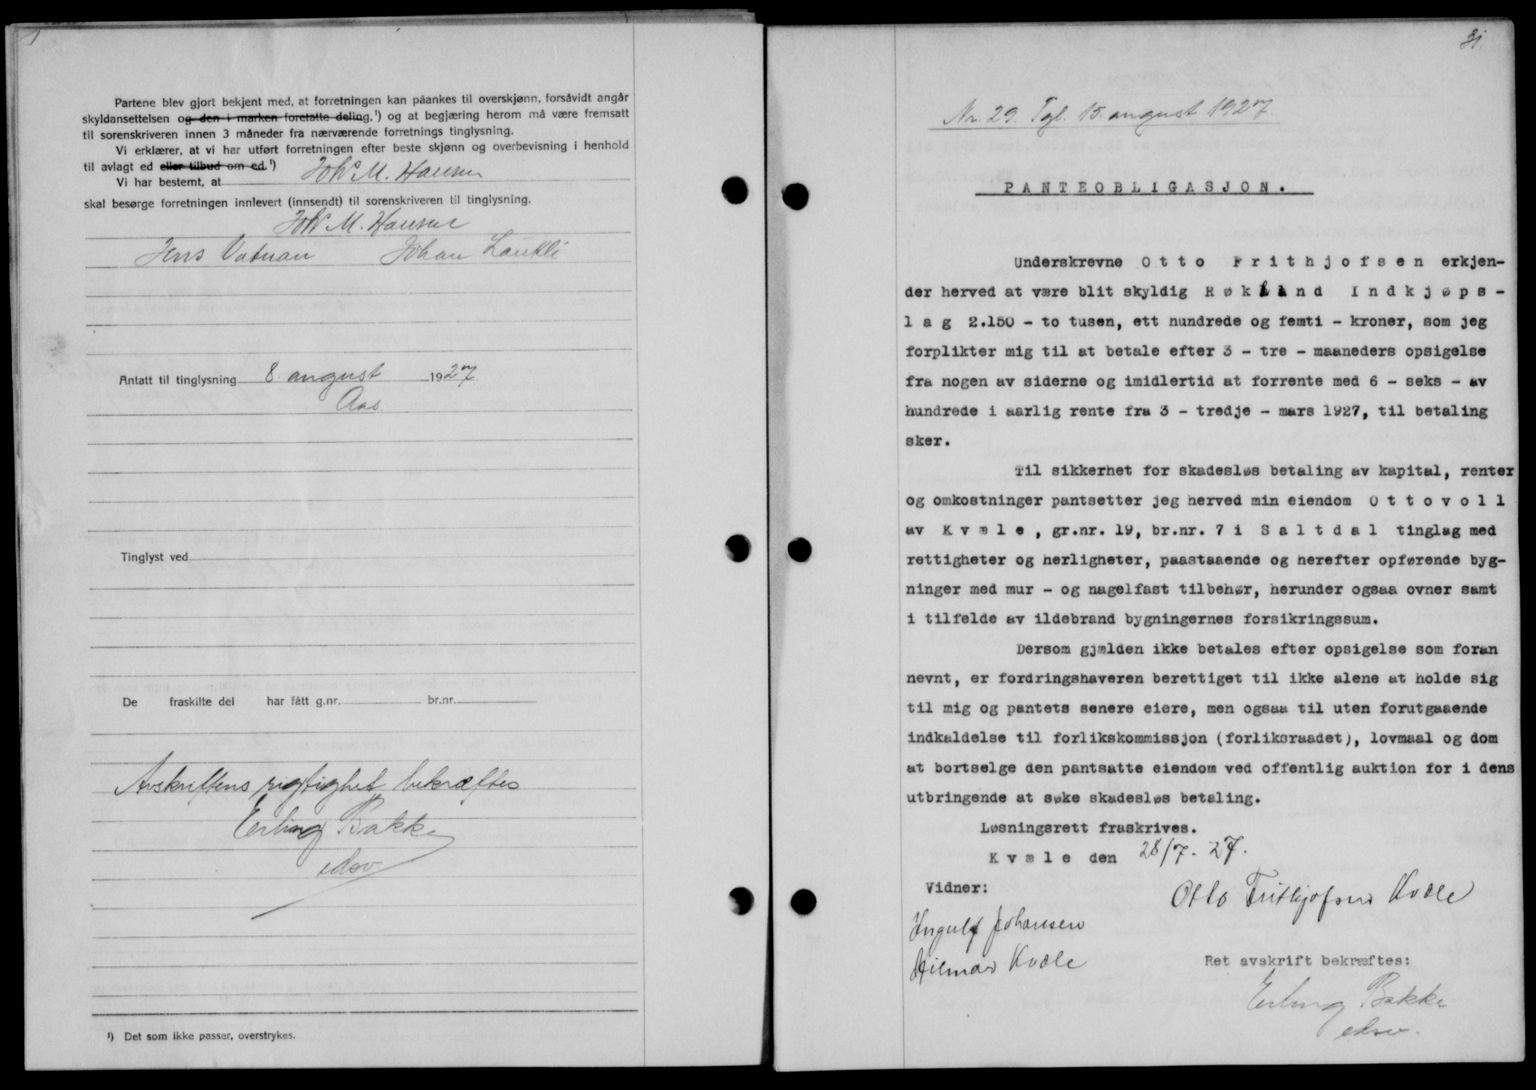 Partene blev gjort bekjent med, at forretningen kan påankes til overskjønn, forsåvidt angår
skyldansettelsen og den i marken foretatte deling,¹) og at begjæring herom må være fremsatt
til sorenskriveren innen 3 måneder fra nærværende forretnings tinglysning.
Vi erklærer, at vi har utført forretningen efter beste skjønn og overbevisning i henhold
til avlagt ed eller tilbud om ed.¹)
Vi har bestemt, at Joh. M. Hansen
skal besørge forretningen innlevert (innsendt) til sorenskriveren til tinglysning.
Joh. M. Hansen
Jens Vatnan Johan
Antatt til tinglysning 8 august 1927
Aas
Tinglyst ved
De fraskilte del har fått g.nr. br.nr.
Avskriftens rigtighet bekræftes
Erling Bakke
edsv
¹) Det som ikke passer, overstrykes.
31.
Nr. 29. Tgl. 15. august 1927.
PANTEOBLIGASJON.
Underskrevne Otto Frithjofsen erkjen-
der herved at være blit skyldig Røkland Indkjøps-
lag 2.150 - to tusen, ett hundrede og femti - kroner, som jeg
forplikter mig til at betale efter 3 - tre - maaneders opsigelse
fra nogen av siderne og imidlertid at forrente med 6 - seks - av
hundrede i aarlig rente fra 3 - tredje - mars 1927, til betaling
sker.
Til sikkerhet for skadesløs betaling av kapital, renter
og omkostninger pantsetter jeg herved min eiendom Ottovoll
av Kvæle, gr.nr. 19, br.nr. 7 i Saltdal tinglag med
rettigheter og herligheter, paastaaende og herefter opførende byg-
ninger med mur - og nagelfast tilbehør, herunder ogsaa ovner samt
i tilfelde av ildebrand bygningernes forsikringssum.
Dersom gjælden ikke betales efter opsigelse som foran
nevnt, er fordringshaveren berettiget til ikke alene at holde sig
til mig og pantets senere eiere, men ogsaa til uten forutgaaende
indkaldelse til forlikskommissjon (forliksraadet), lovmaal og dom
at bortselge den pantsatte eiendom ved offentlig auktion for i dens
utbringende at søke skadesløs betaling.
Løsningsrett fraskrives.
Kvæle den 28/7. 27.
Vidner:
Otto Frithjofsen Kvæle
Ingulf Johansen
Hilmar Kvæle
Ret avskrift bekræftes:
Erling Bakke
edsv.